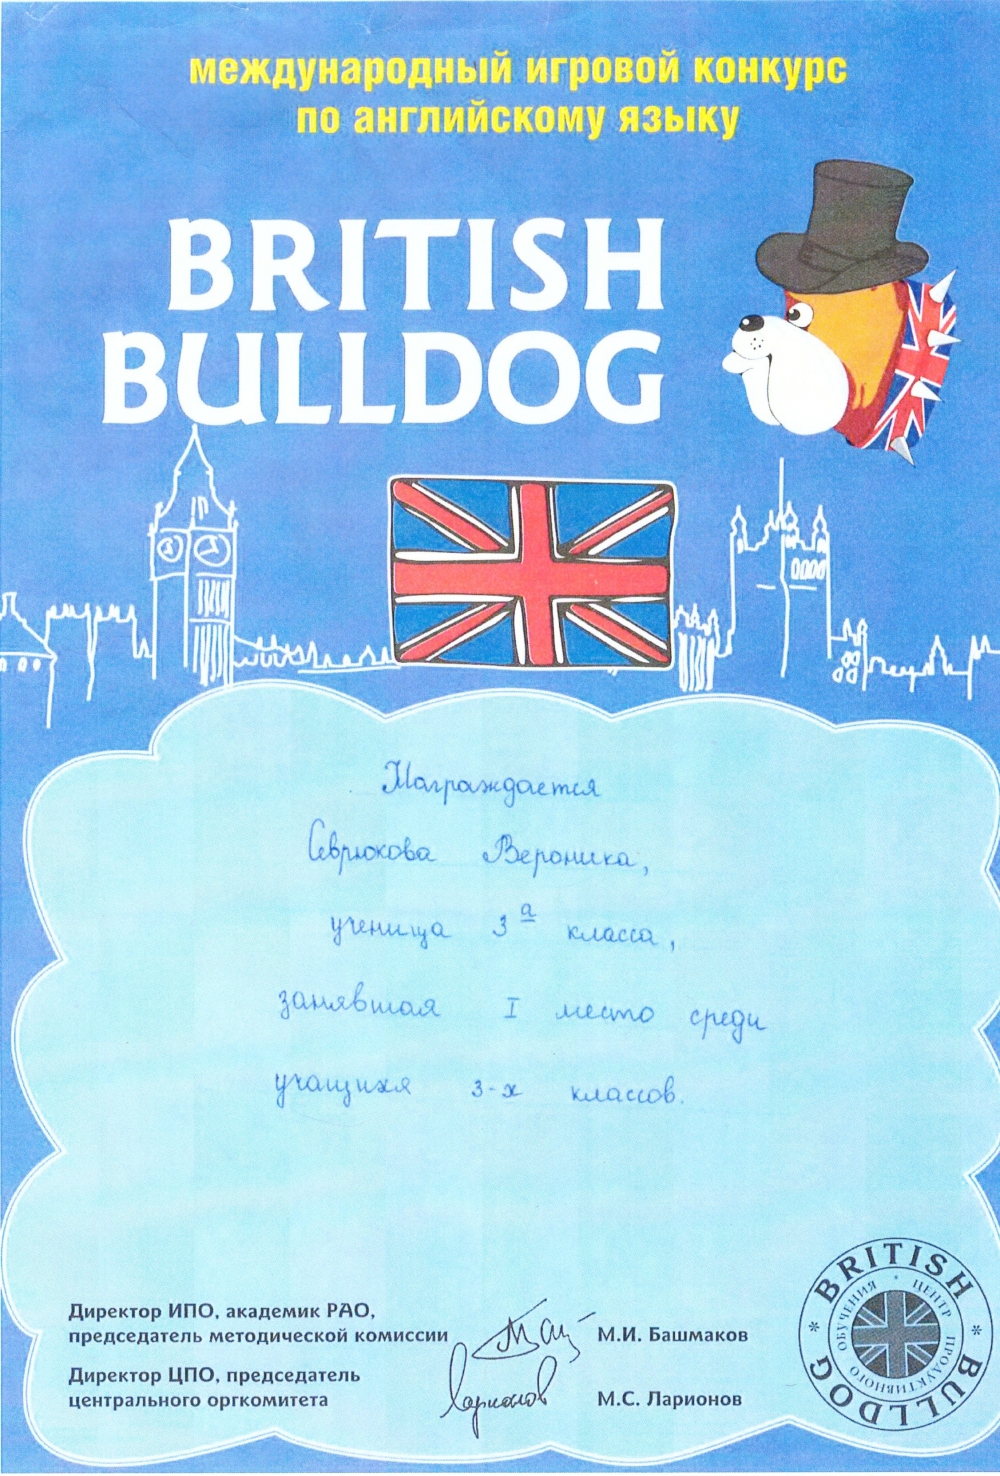 международный игровой конкурс
по английскому языку
BRITISH
BULLDOG
Награждается
Севрюкова Вероника,
ученица 3а класса,
занявшая I место среди
учащихся 3-х классов.
Директор ИПО, академик РАО,
председатель методической комиссии
М.И. Башмаков
Директор ЦПО, председатель
центрального оргкомитета
Ларионов
М.С. Ларионов
BRITISH BULLDOG
ЦЕНТР ПРОДУКТИВНОГО ОБУЧЕНИЯ